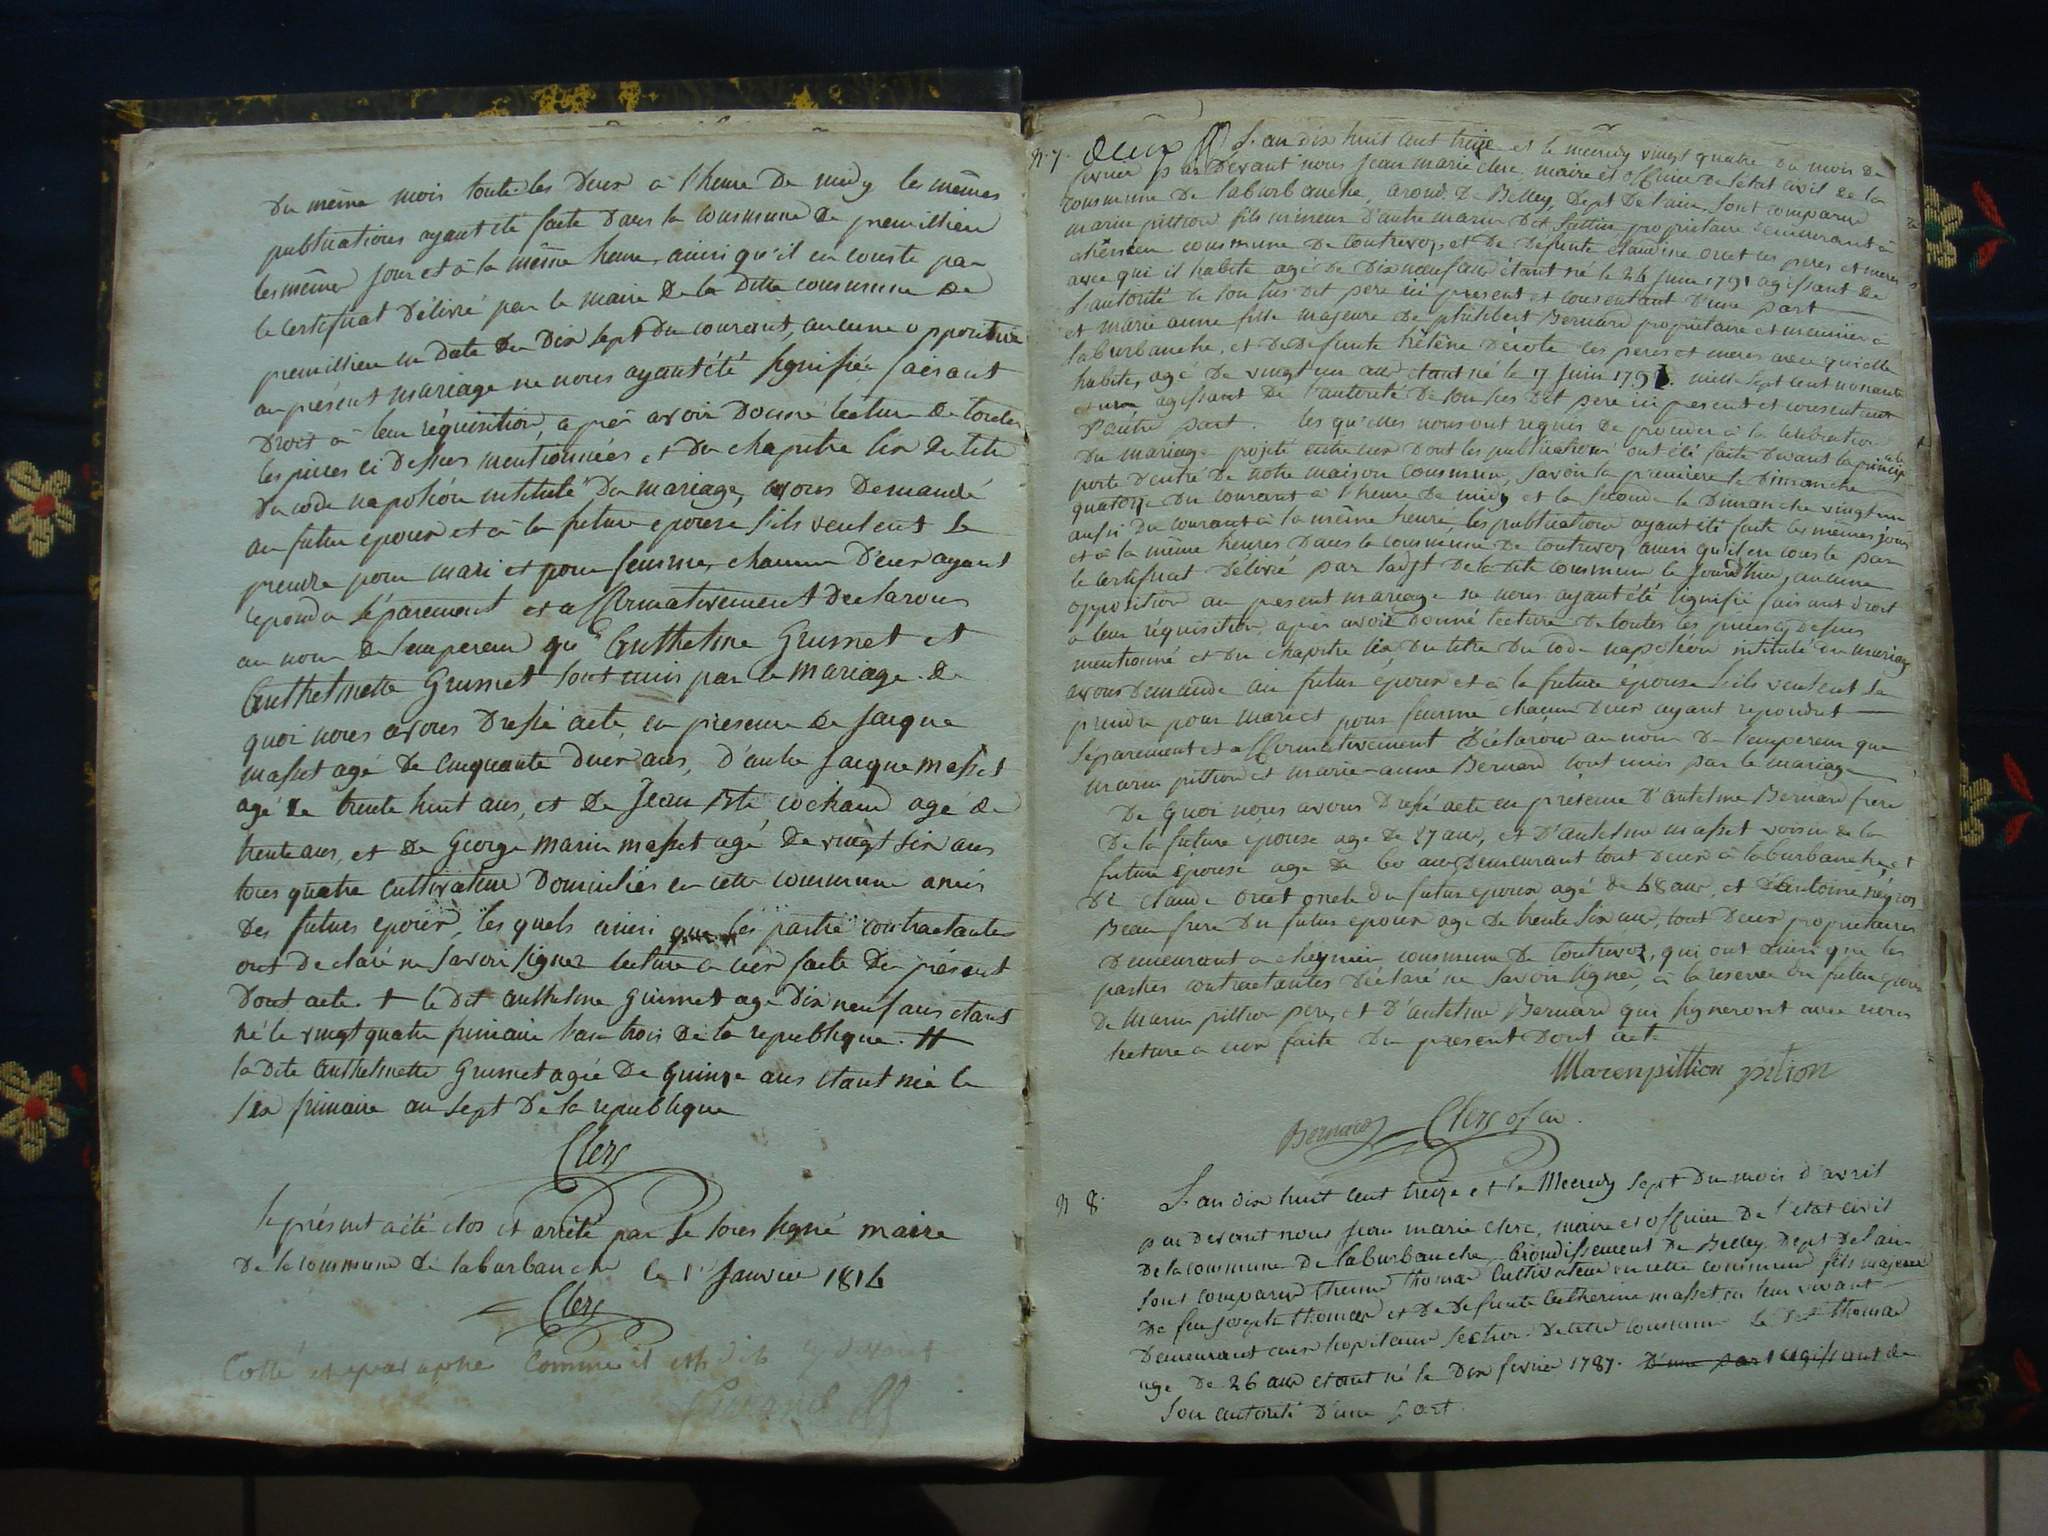 Du même mois toute les deux à l'heure de midy les mêmes
publications ayant été faite dans la commune de premillieu
les même jour et à la même heure, ainsi qu'il en conste par
le certificat délivré par le maire de la ditte commune de
premillieu en date du dix sept du courant, aucune opposition
au présent mariage ne nous ayant été signifiée, faisant
droit à leur réquisition, après avoir donné lecture de toutes
les pièces ci dessus mentionnées et du chapitre six du titre
du code napoléon intitulé du mariage, avons demandé
au futur epoux et à la future epouse s'ils veulent se
prendre pour mari et pour femme, chacun d'eux ayant
repondu séparement et affirmativement declarons
au nom de l'empereur que Anthelme Grumet et
Anthelmette Grumet sont unis par le mariage. de
quoi nous avons dressé acte, en presence de Jacque
masset agé de cinquante deux ans, d'autre Jacque masset
agé de trente huit ans, et de Jean Bte cochand agé de
trente ans, et de George marin masset agé de vingt six ans
tous quatre cultivateur domiciliés en cette commune amis
des futurs epoux, les quels ainsi que les partie contractantes
ont declaré ne savoir signer lecture a eux faite du présent
dont acte. + le dit anthelme Grumet age dix neuf ans etant
né le vingt quatre frimaire l'an trois de la republique. H
la dite anthelmette Grumet agée de quinze ans etant née le
six frimaire an sept de la republique
Clerc
le présent a été clos et arrêté par le sous signé maire
de la commune de laburbanche le 1r Janvier 1814
Clerc
Cotté et paraphé comme il est dit cy devant
N. 7. L'an dix huit cent treize et le mercredy vingt quatre du mois de
fevrier par devant nous Jean marie clerc, maire et officier de l'état civil de la
commune de laburbanche, arond. de Belley, dept de l'ain, sont comparu
marin pittion fils mineur d'autre marin dit propriétaire demeurant à
commune de Contrevoz, et de defunte claudine ses peres et meres
avec qui il habite agé de dix neuf ans étant né le 24 juin 1791 agissant de
l'autorité de son sus dit pere ici present et consentant d'une part
et marie anne fille majeure de philibert Bernard propriétaire et meunier à
laburbanche, et de defunte hélène ses peres et meres avec qui elle
habite, agé de vingt un ans etant né le 17 juin 1791. mille sept cent nonante
et un agissant de l'autorité de son sus dit pere ici present et consentant
d'autre part. les quelles nous ont requis de proceder à la célébration
du mariage projeté entre eux dont les publications ont été faite devant la principale
porte d'entré de notre maison commune, savoir la premiere le dimanche
quatorze du courant à l'heure de midy et la seconde le dimanche vingt un
aussi du courant à la même heure, les publications ayant été faite les mêmes jours
et à la même heures dans la commune de Contrevoz ainsi qu'il en conste par
le certificat délivré par ladjt de la dite commune le jourd'hui, aucune
opposition au present mariage ne nous ayant été signifié faisant droit
a leur réquisition, après avoir donné lecture de toutes les pieces cy dessus
mentionné et du chapitre six du titre du code napoléon intitulé du mariage
avons demandé au futur époux et à la future épouse s'ils veulent se
prendre pour mari et pour femme chacun d'eux ayant repondut
séparement et affirmativement déclarons au nom de l'empereur que
marin pittion et marie-anne Bernard sont unis par le mariage
De quoi nous avons dressé acte en presence d'antelme Bernard frere
de la future epouse age de 27 ans, et d'antelme masset voisin de la
future épouse age de 60 ans demeurant tout deux à laburbanche, et
de claude oncle du futur epoux agé de 48 ans, et d'antoine
Beau frere du futur epoux age de trente six ans, tout deux proprietaires
demeurant a cheynieu commune de Contrevoz, qui ont ainsi que les
parties contractantes déclaré ne savoir signer, à la reserve du futur epoux
de marin pittion pere, et d'antelme Bernard qui signeront avec nous
lecture a eux faite du present dont acte
Marenpittion pition
Bernard Clerc of cv.
N 8. L'an dix huit cent treize et le Mecredy sept du mois d'avril
par devant nous jean marie clerc, maire et officier de l'etat civil
de la commune de laburbanche, arondissement de Belley, dept de l'ain
sont comparu thomas cultivateur en cette commune fils majeur
de feu joseph thomas et de defunte catherine masset en leur vivant
demeurant aux hopitaux section de cette commune le dit thomas
age de 26 ans etant né le dix fevrier 1787. d'une part agissant de
son autorité d'une part.